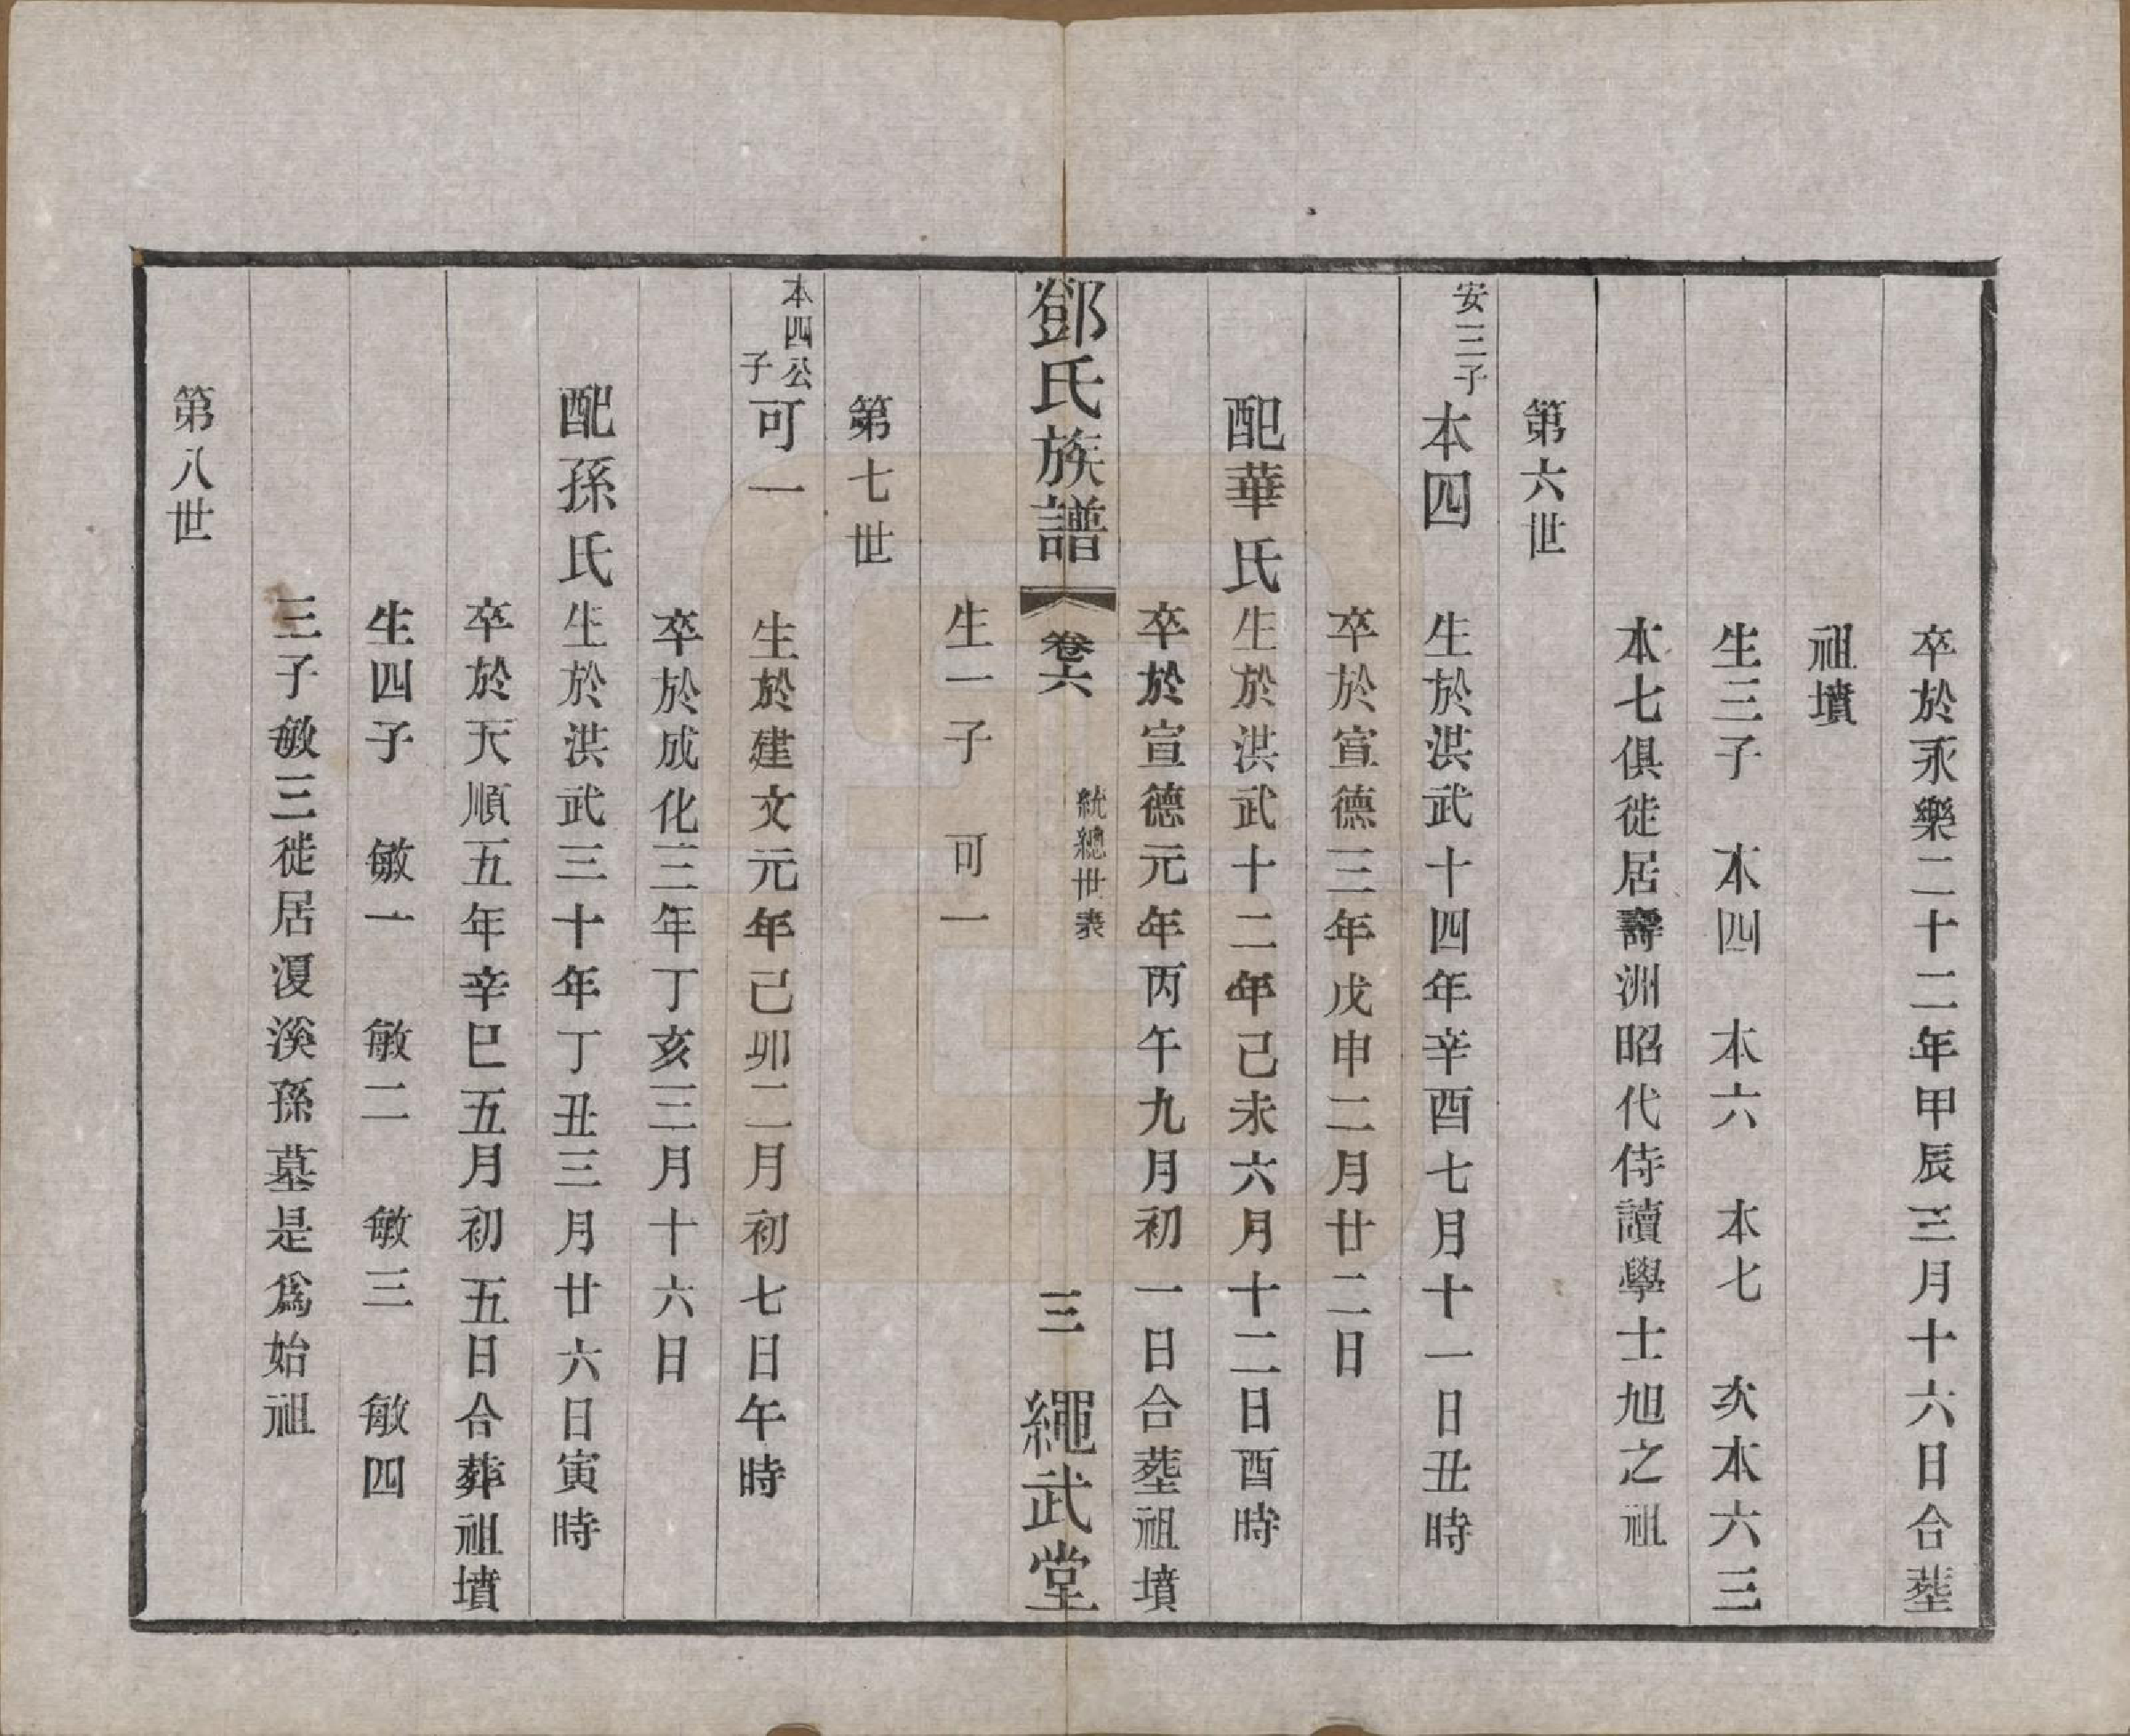 卒於永樂二十二年甲辰三月十六日合塟
祖墳
生三子　本四　本六　本七　次本六三
本七俱徙居壽洲昭代侍讀學士旭之祖
第六世
安三子
本四　生於洪武十四年辛酉七月十一日丑時
卒於宣德三年戊申二月廿二日
配華氏生於洪武十二年己未六月十二日酉時
卒於宣德元年丙午九月初一日合塟祖墳
鄧氏族譜　卷六　統總世表　三　繩武堂
生一子　可一
第七世
本四公
子
可一　生於建文元年己卯二月初七日午時
卒於成化三年丁亥三月十六日
配孫氏生於洪武三十年丁丑三月廿六日寅時
卒於天順五年辛巳五月初五日合葬祖墳
生四子　敏一　敏二　敏三　敏四
三子敏三徙居溭溪孫墓是爲始祖
第八世